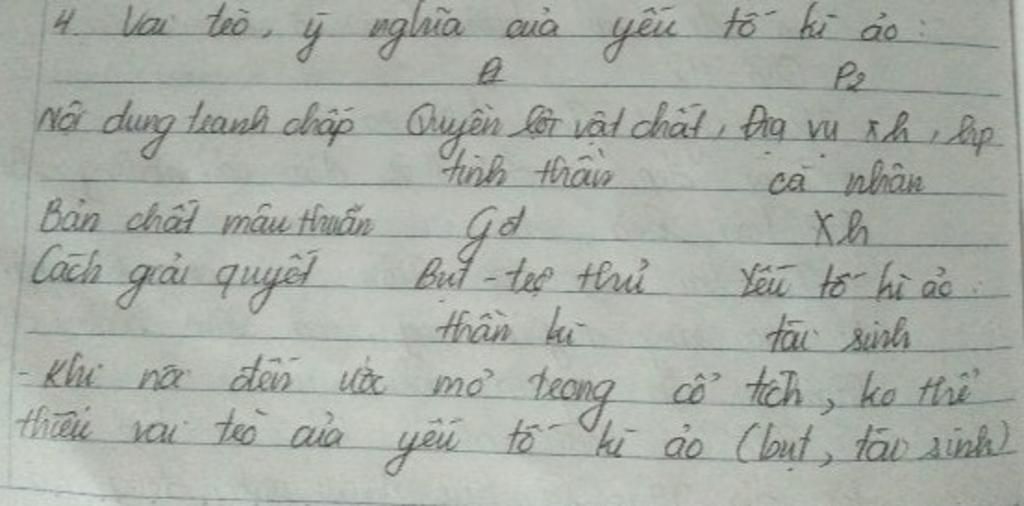 4. Vai trò, ý nghĩa của yếu tố kì ảo:
P1 P2
Nội dung tranh chấp Quyền lợi vật chất, Địa vị xh, hp
tinh thần cá nhân
Bản chất mâu thuẫn Gđ Xh
Cách giải quyết Bụt - trợ thủ Yếu tố kì ảo
thần kì tái sinh
- Khi nói đến ước mơ trong cổ tích, ko thể
thiếu vai trò của yếu tố kì ảo (bụt, tái sinh)